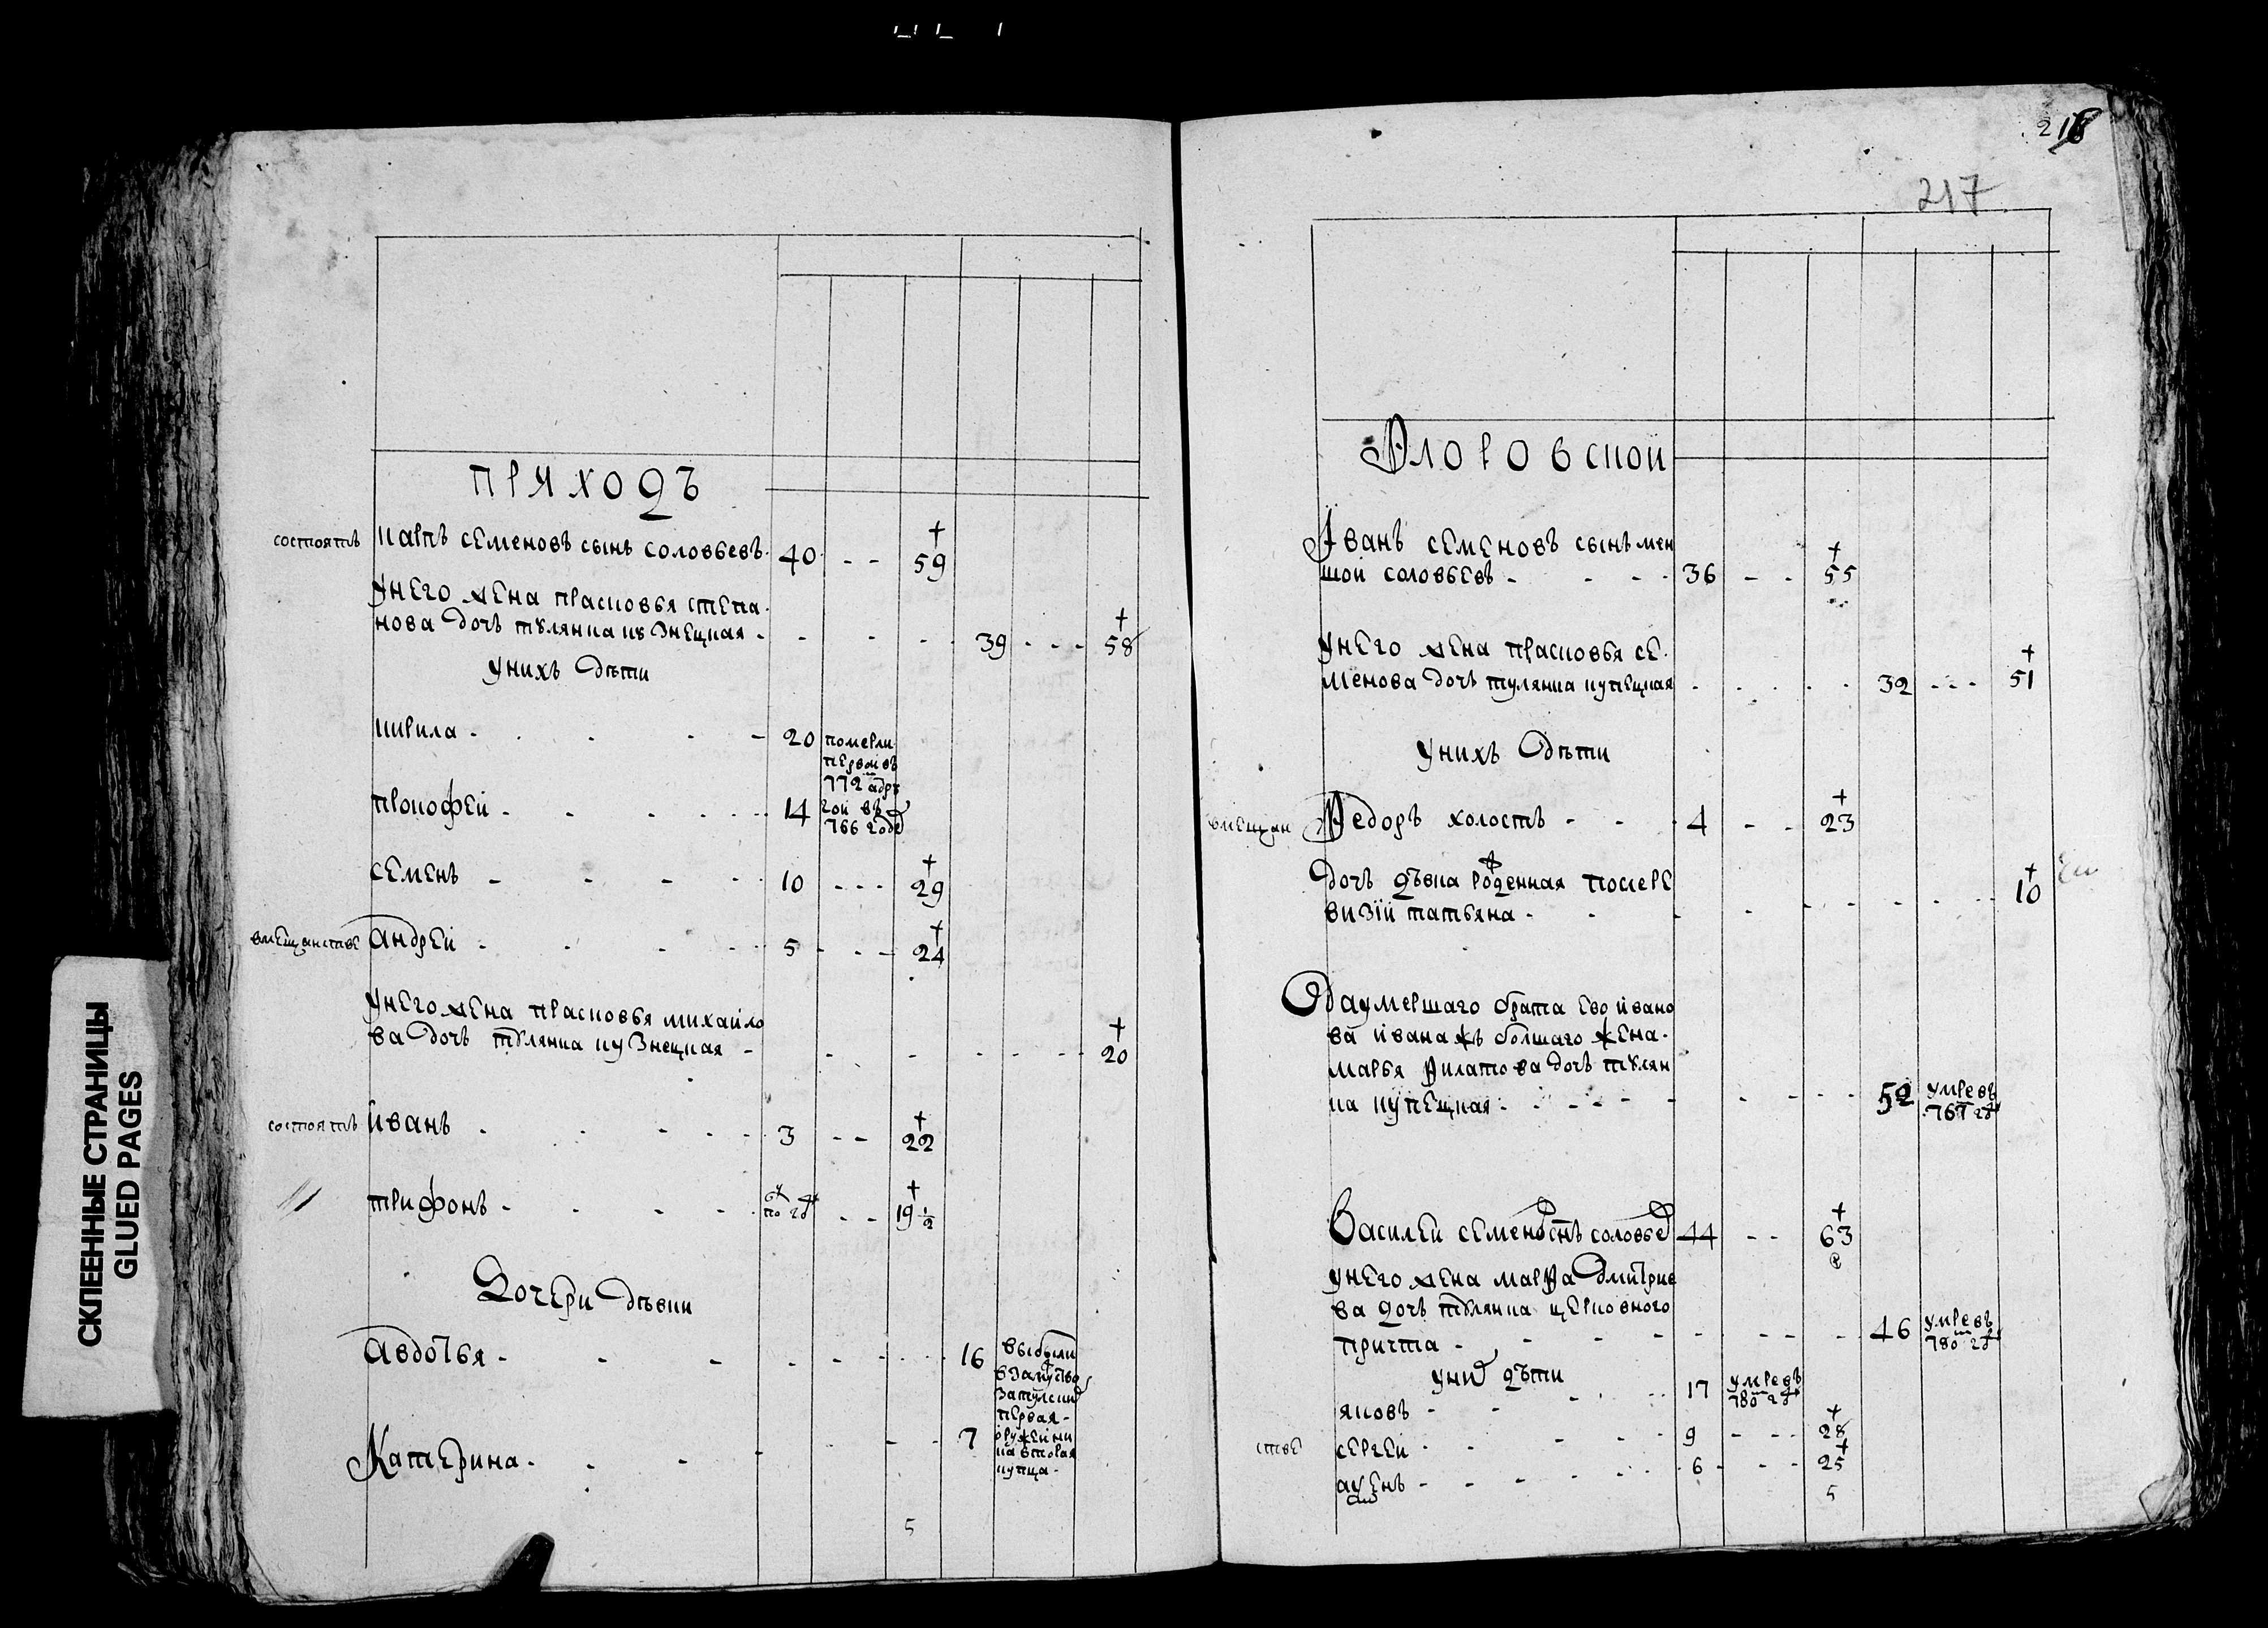 СКЛЕЕННЫЕ СТРАНИЦЫ
GLUED PAGES
ПРИХОДЪ
состоятъ Карпъ семеновъ сынъ соловьевъ 40 - - † 59
унего жена прасковья степа
нова дочь тулянка кузнецкая - 39 - - - † 58
унихъ дѣти
кирила - 20 померли
первай въ
772м адру
прокофей - 14 гой въ
766 годе
семенъ - 10 - - - † 29
вмещанстве андрей - 5 - - - † 24
унего жена прасковья михайло
ва дочь тулянка кузнецкая - † 20
состоятъ иванъ - 3 - - † 22
// трифонъ - по 2д - - † 19 1/2
Дочери дѣвки
авдотья - 16 выбыли
взамуство
затулских
первая -
Катерина - 7 оружейни
ка втовая
купца -
5
218
217
Флоровской
Иванъ семеновъ сынъ мен
шой соловьевъ - 36 - - † 55
унего жена прасковья се
менова дочь тулянка купецкая 32 - - - † 51
унихъ дѣти
вмещан Федоръ холостъ - - 4 - - † 23
дочь дѣвка рожденная послере
визіи татьяна - † 10
Оѣаумершаго брата ево ивано
ва иванажъ болшаго жена -
марья филатова дочь тулян
ка купецкая - 52 умре въ
767 гд
Василей семеновснъ соловьев 44 - - † 63
унего жена марфа дмитрие
ва дочь тулянка церковного
причта - 46 умре въ
780м гд
уних дѣти
яковъ - 17 умре въ
780м гд
стве сергей - 9 - - - † 28
6 - - - † 25
5